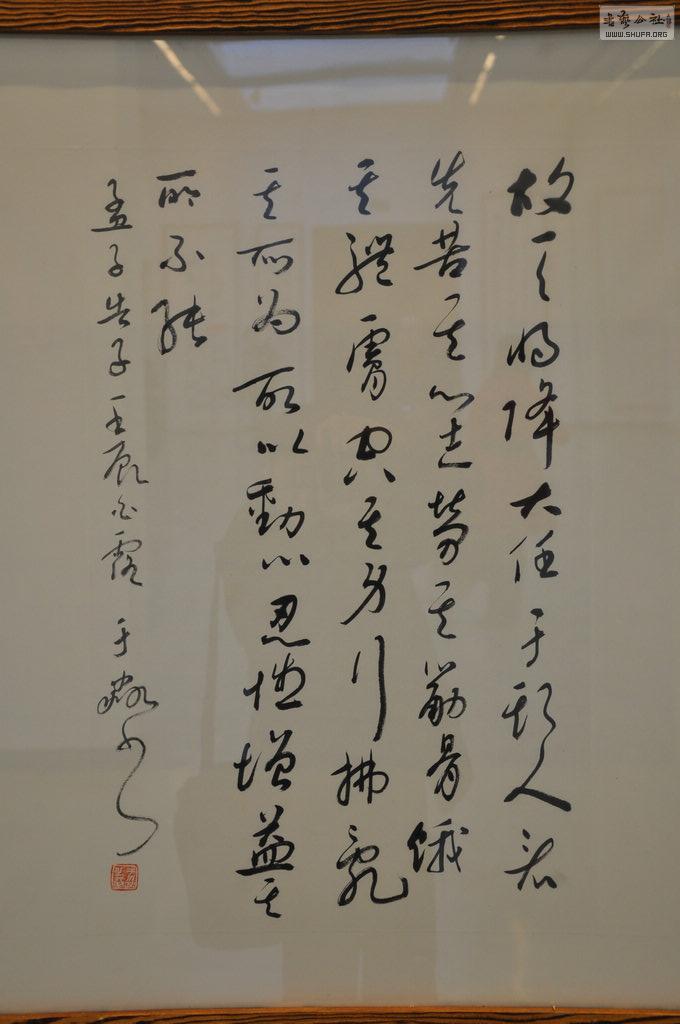 故天将降大任于斯人者
先苦其心志勞其筋骨餓
其體膚空其身行拂亂
其所為所以動心忍性增益其
所不能
孟子告子壬辰白露于
WWW.SHUFA.ORG